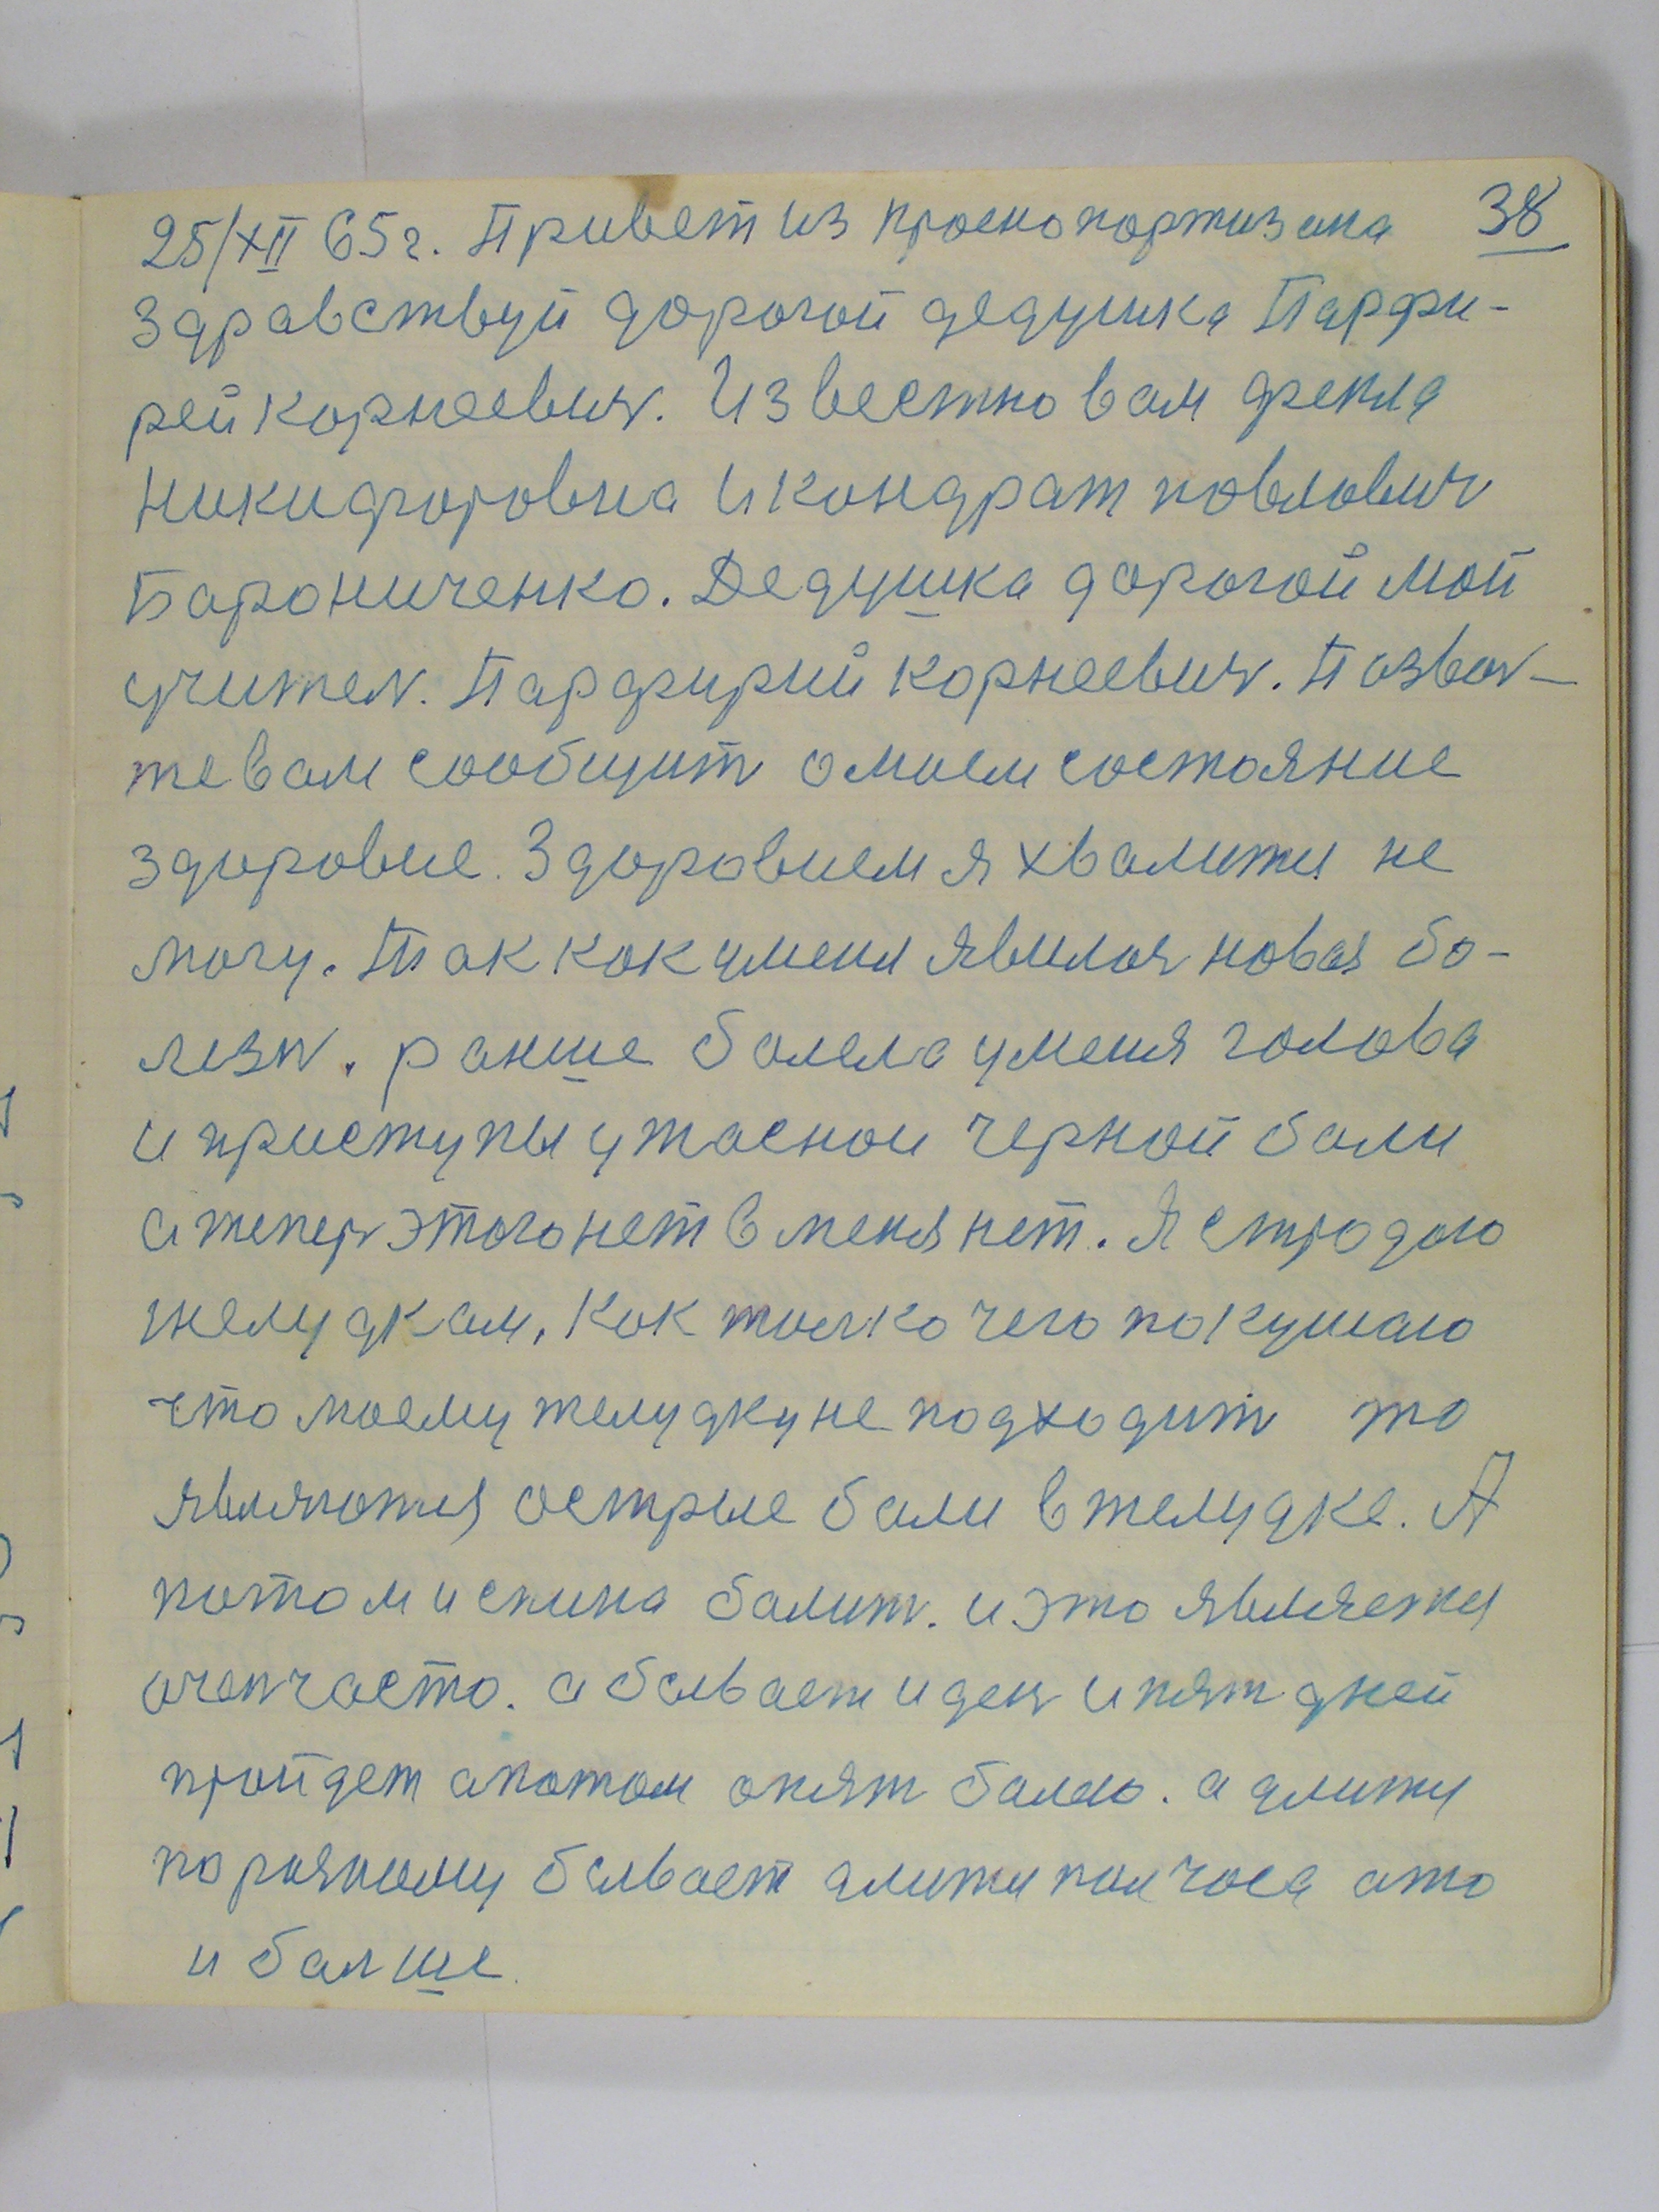 25/XII 65г. Привет из краснопартизана 38
Здравствуй дорогой дедушка Парфи-
рей корнеевич. Известно вам фекла
Никифоровна и кондрат павлович
Барониченко. Дедушка дорогой мой
учител. Парфирий корнеевич. Позвол-
те вам сообщит о моем состояние
здоровие. Здоровием я хвалитя не
могу. Так как уменя явилоя новая бо-
лезн. ранше болела уменя голова
и приступы ужасной черной боли
а тепер этого нет в меня нет. Я страдаю
желудкам, как толко чего покушаю
что моему желудку не подходит то
являютия острые боли в желудке. А
потом и спина балит. и это являетия
очен часто. а бывает иден и пят дней
пройдет а потом опят балею. а длитя
по разному бывает длитя пол часа ато
и балше.